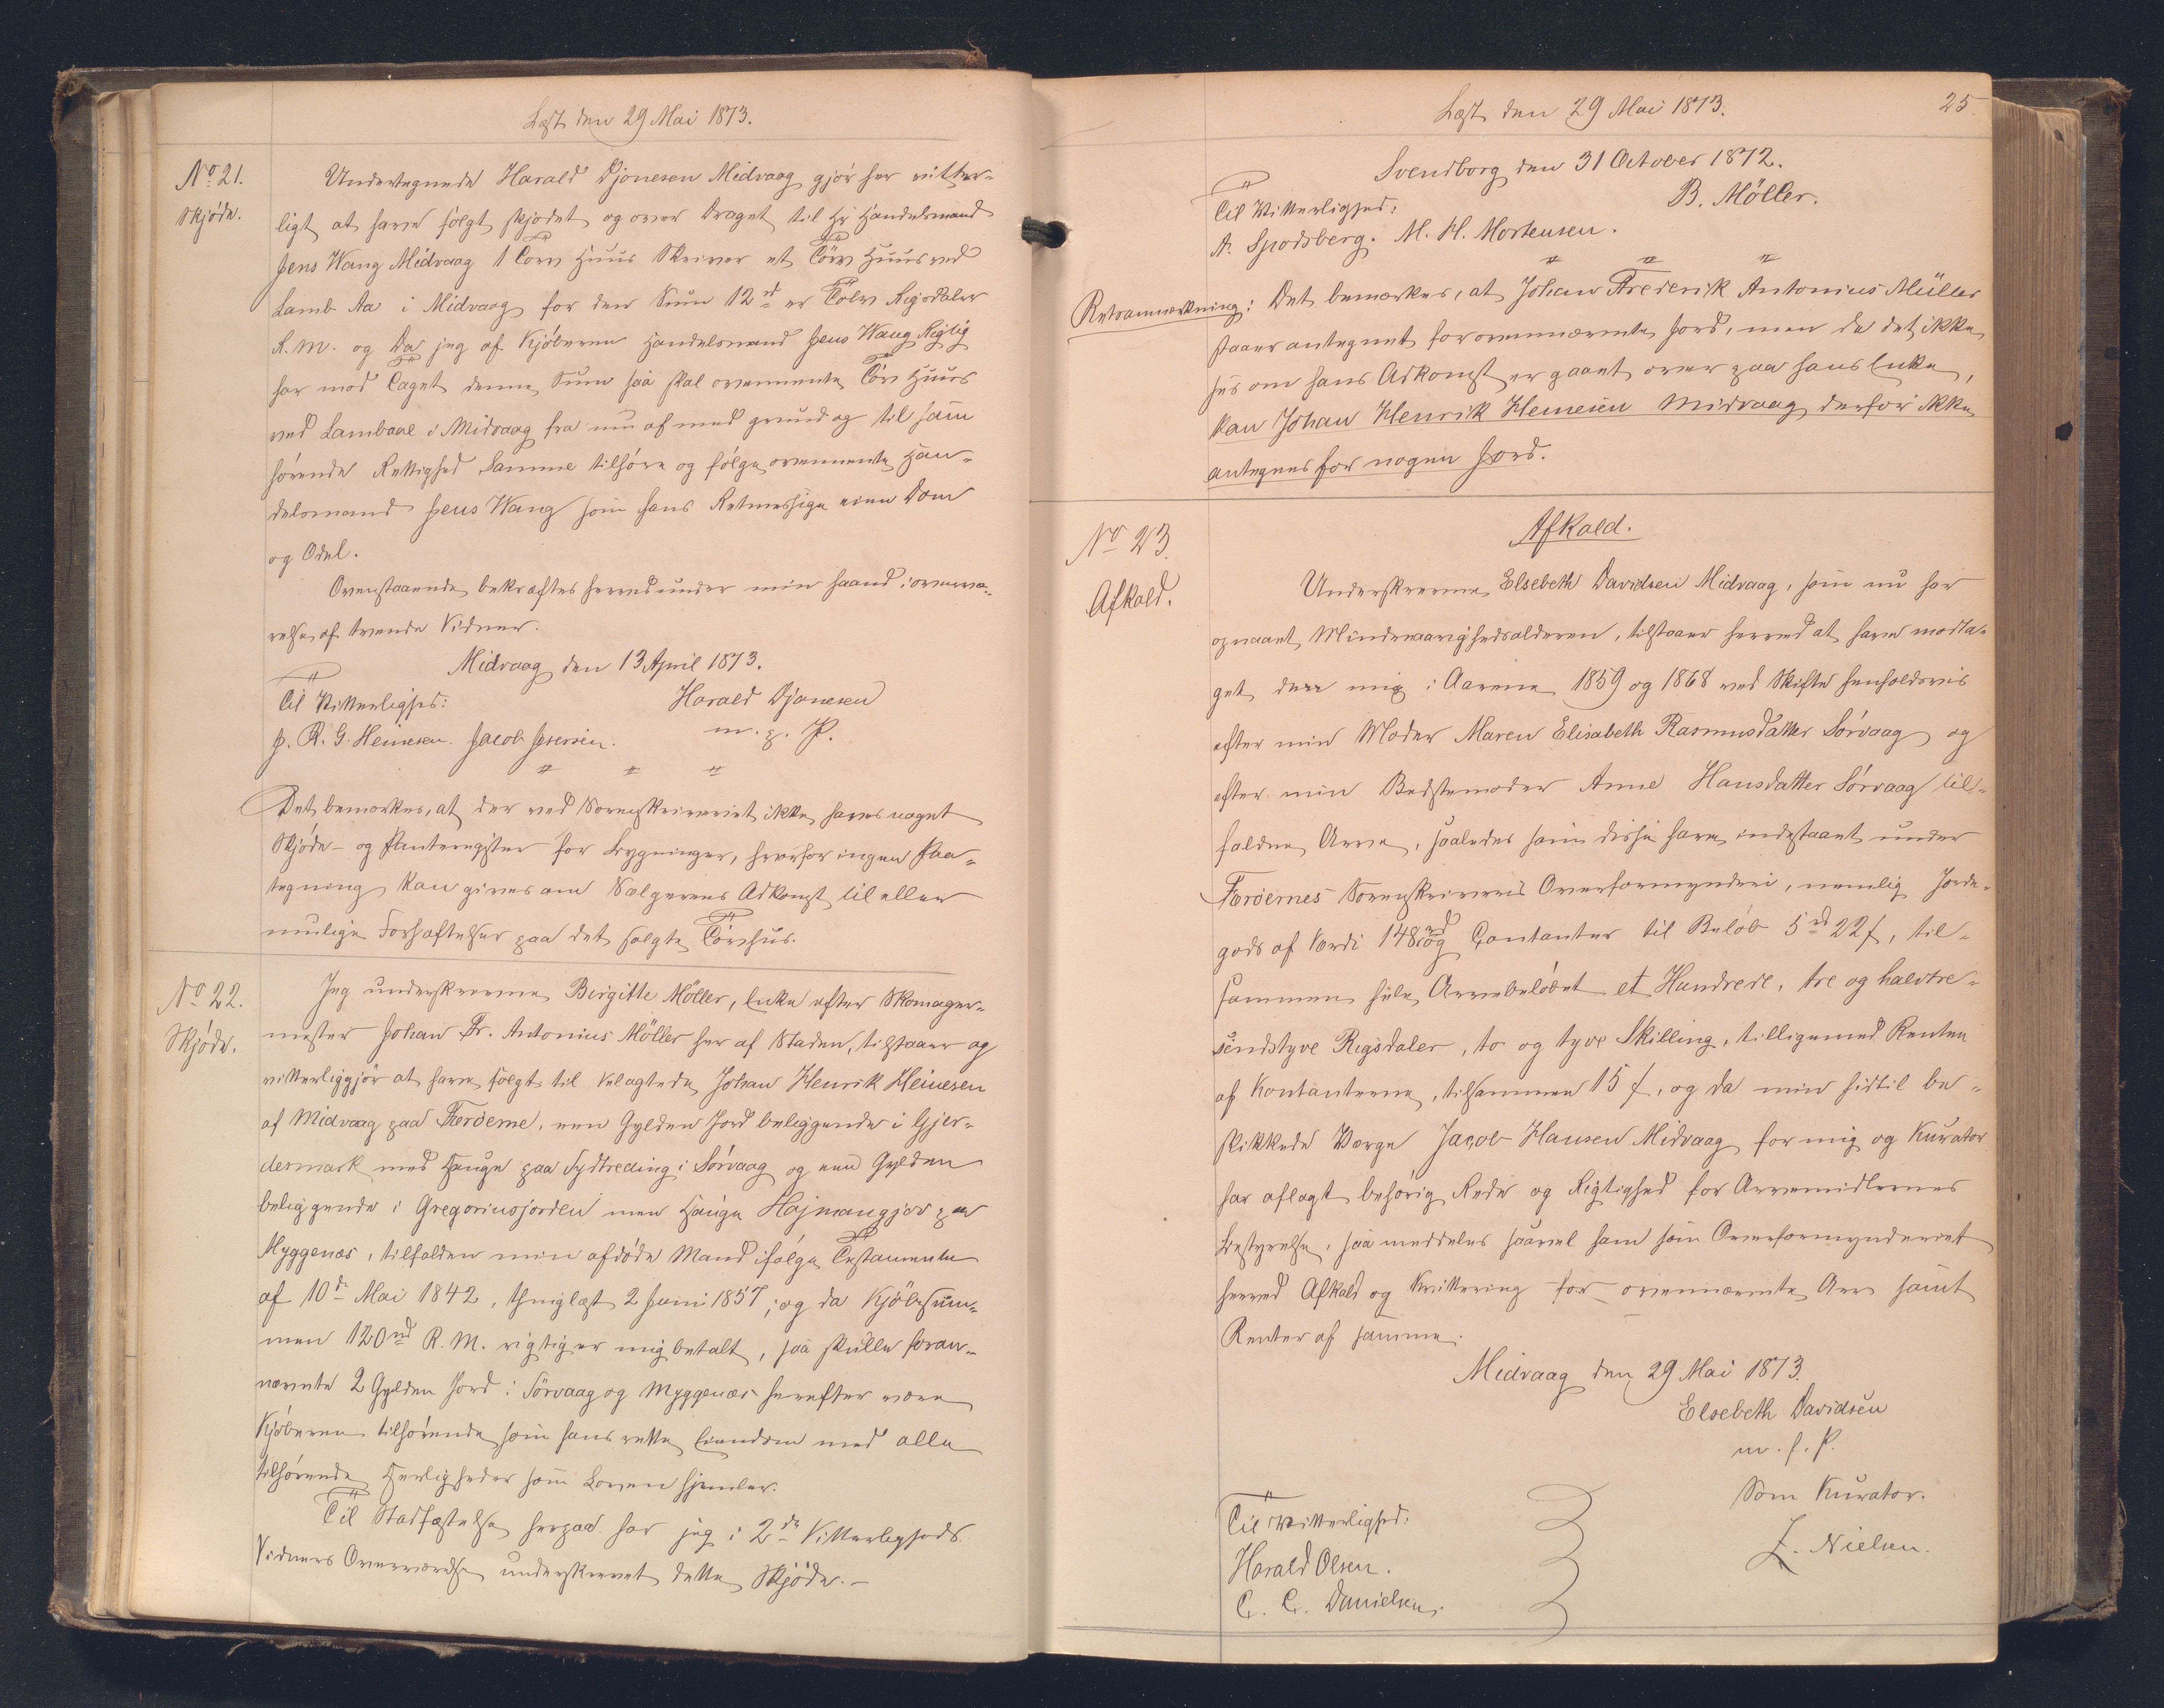 Læst den 29 Mai 1873.
No 21.
Skjöde.
Undertegnede Harald Djonesen Midvaag gjör her vitter-
ligt at have solgt skjödet og over Draget til Hr Handelsmand
Jens Wang Midvaag 1 Törv Huus Skriver et Törv Huus ved
Lamb Aa i Midvaag for den Sum 12 rd er Tolv Rigsdaler
R.M. og Da jeg af Kjöberen Handelsmand Jens Wang Rigtig
har mod Taget denne Sum saa skal ovennente Törv Huus
ved Lambaae i Midvaag fra nu af med grund og til sam
hörende Rettighed Samme tilhöre og fölge ovennente Han-
delsmand Jens Wang som hans Retmessige eien Dom
og Odel.
Ovenstaaende bekræftes herved under min haand i overvæ-
relse af tvende Vidner.
Midvaag den 13 April 1873.
Til Vitterlighed: Harald Djonesen
J. R. G. Heinesen. Jacob Joensen. m. p. P.
Det bemærkes, at der ved Sorenskriveriet ikke haves noget
Skjöde- og Panteregister for Bygninger, hvorfor ingen Paa-
tegning kan gives om Sælgerens Adkomst til eller
mulige Forhæftelser paa det solgte Törvhus.
No 22.
Skjöde.
Jeg underskrevne Birgitte Möller, Enke efter Skomager-
mester Johan Fr. Antonius Möller her af Staden, tilstaaer og
vitterliggjör at have solgt til Velagtede Johan Henrik Heinesen
af Midvaag paa Færöerne, een Gylden Jord beliggende i Gjer-
dermark med Hauge paa Sydtreding i Sörvaag og een Gylden
beliggende i Gregoriusjorden med Hauge Hajmangjov paa
Myggenæs, tilfalden min afdöde Mand ifölge Testamente
af 10de Mai 1842, thinglæst 2 Juni 1857; og da Kjöbesum-
men 120 rd R. M. rigtig er mig betalt, saa skulle foran-
nævnte 2 Gylden Jord i Sörvaag og Myggenæs herefter være
Kjöberen tilhörende som hans rette Eiendom med alle
tilhörende Herligheder som Loven hjemler.
Til Stadfæstelse herpaa har jeg i 2de Vitterligheds
Vidners Overværelse underskrevet dette Skjöde.-
Læst den 29 Mai 1873.
25
Svendborg den 31 October 1872.
Til Vitterlighed: B. Möller.
A. Spodsberg. M. H. Mortensen.
Retsanmærkning: Det bemærkes, at Johan Frederik Antonius Müller
staaer antegnet for ovennævnte Jord, men da det ikke
sees om hans Adkomst er gaaet over paa hans Enke,
kan Johan Henrik Heinesen Midvaag derfor ikke
antegnes for nogen Jord.
No 23.
Afkald.
Afkald.
Underskrevne Elsebeth Davidsen Midvaag, som nu har
opnaaet Mindreaarighedsalderen, tilstaaer herved at have modta-
get den mig i Aarene 1859 og 1868 ved Skifte henholdsvis
efter min Moder Maren Elisabeth Rasmusdatter Sörvaag og
efter min Bedstemoder Anne Hansdatter Sörvaag til-
faldne Arve, saaledes som disse have indestaaet under
Færöernes Sorenskriveris Overformynderi, nemlig Jorde-
gods af Værdi 148 rd og Contanter til Belöb 5 rd 22 ß, til-
sammen hele Arvebelöbet et Hundrede, tre og halvtre-
sindstyve Rigsdaler, to og tyve Skilling, tilligemed Renten
af Kontanterne, tilsammen 15 ß, og da min hidtil be-
skikkede Værge Jacob Hansen Midvaag for mig og Kurator
har aflagt behörig Rede og Rigtighed for Arvemidlernes
Bestyrelse, saa meddeles saavel ham som Overformynderiet
herved Afkald og Kvittering for ovennævnte Arv samt
Renter af samme.
Midvaag den 29 Mai 1873.
Elsebeth Davidsen
m. f. P.
Som Kurator.
Til Vitterlighed: Z. Nielsen.
Harald Olsen.
C. C. Danielsen.